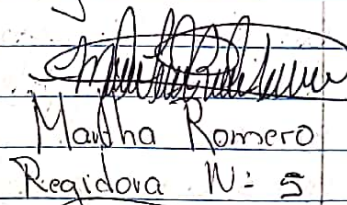 Martha Romero
Regidora N: 5